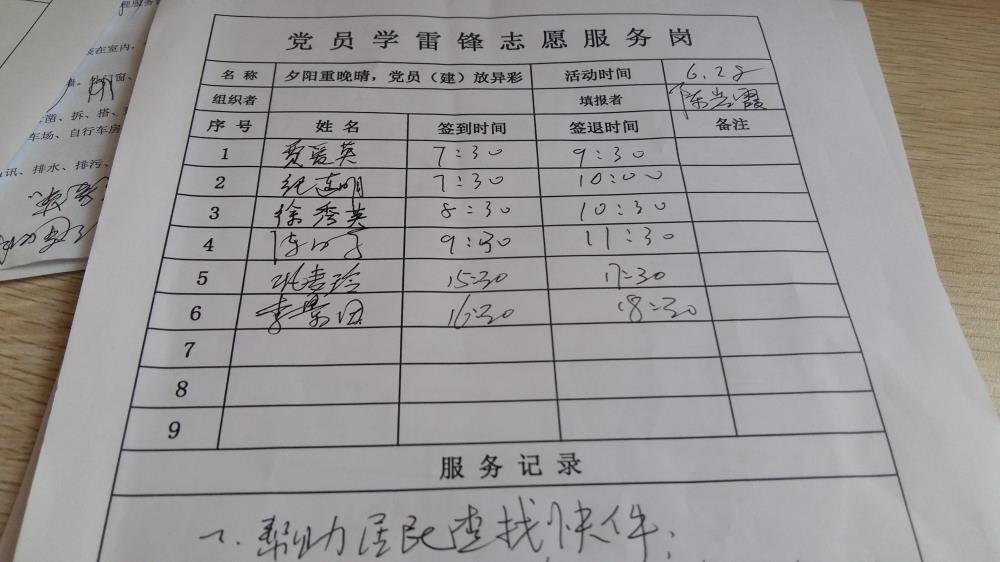 党员学雷锋志愿服务岗
名称 夕阳重晚晴，党员（建）放异彩 活动时间 6.28
组织者 填报者
序号 姓名 签到时间 签退时间 备注
1 贾爱英 7:30 9:30
2 纪连明 7:30 10:00
3 徐秀英 8:30 10:30
4 9:30 11:30
5 15:30 17:30
6 李景田 16:30 18:30
7
8
9
服务记录
一、帮助居民查找快件；
在室内，
窗、
凿、拆、搭、
车场、自行车房
讯、排水、排污、